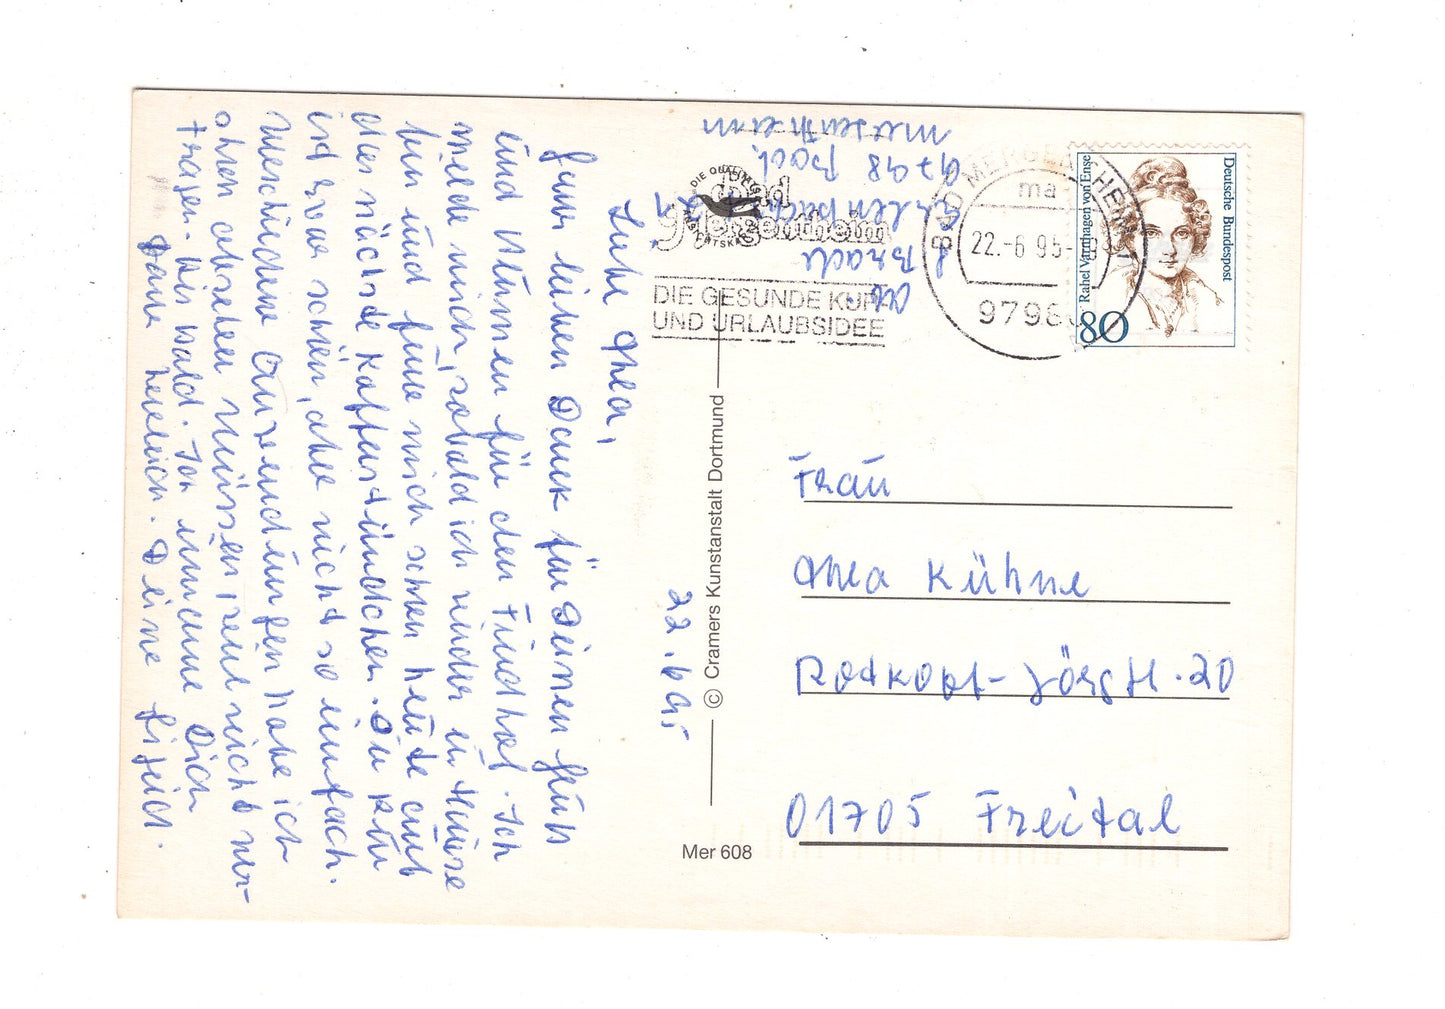 Liebe Thea,
ganz lieben Dank für Deinen Gruß
und Blumen für den Friedhof. Ich
melde mich, sobald ich wieder zu Hause
bin und freue mich schon heute auf
das nächste Kaffeestündchen. Die Kur
ist zwar schön, aber nicht so einfach.
Verschiedene Anwendungen habe ich
schon absetzen müssen, weil nicht ver-
tragen. Bis bald. Ich umarme Dich
ganz herzlich. Deine
22.6.95
© Cramers Kunstanstalt Dortmund
Mer 608
DIE QUALITÄTS
ANSICHTSKARTE
Bad
Mergentheim
DIE GESUNDE KUR-
UND URLAUBSIDEE
BAD MERGENTHEIM 1
ma
22.-6.95-
97980
Deutsche Bundespost
Rahel Varnhagen von Ense
80
Frau
Thea Kühne
Rotkopf-Görg Str. 20
01705 Freital